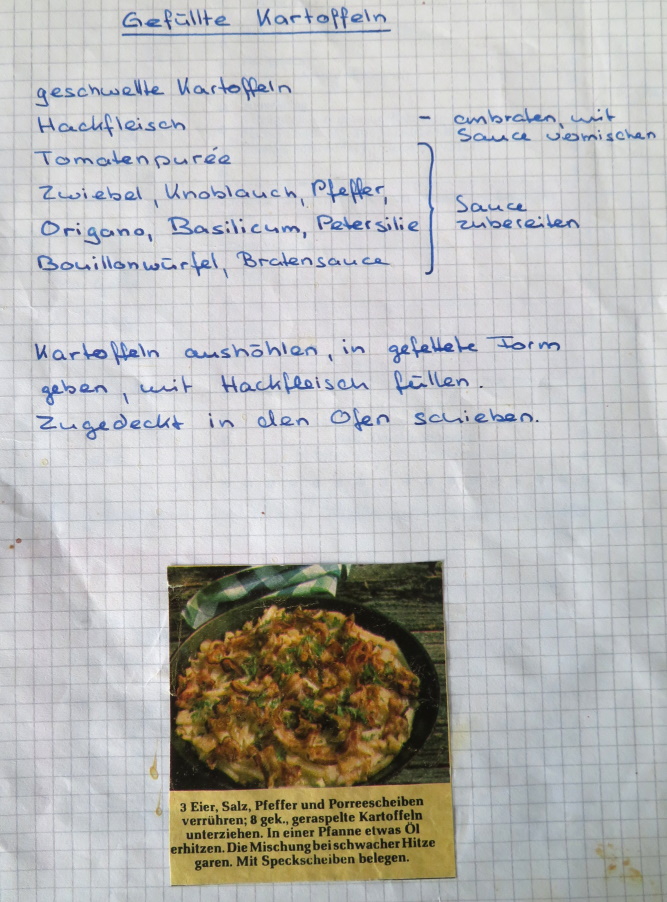 Gefüllte Kartoffeln
geschwellte Kartoffeln
Hackfleisch - anbraten, mit
Sauce vermischen
Tomatenpurée
Zwiebel, Knoblauch, Pfeffer,
Origano, Basilicum, Petersilie
Bouillonwürfel, Bratensauce
Sauce
zubereiten
Kartoffeln aushöhlen, in gefettete Form
geben, mit Hackfleisch füllen.
Zugedeckt in den Ofen schieben.
3 Eier, Salz, Pfeffer und Porreescheiben
verrühren; 8 gek., geraspelte Kartoffeln
unterziehen. In einer Pfanne etwas Öl
erhitzen. Die Mischung bei schwacher Hitze
garen. Mit Speckscheiben belegen.